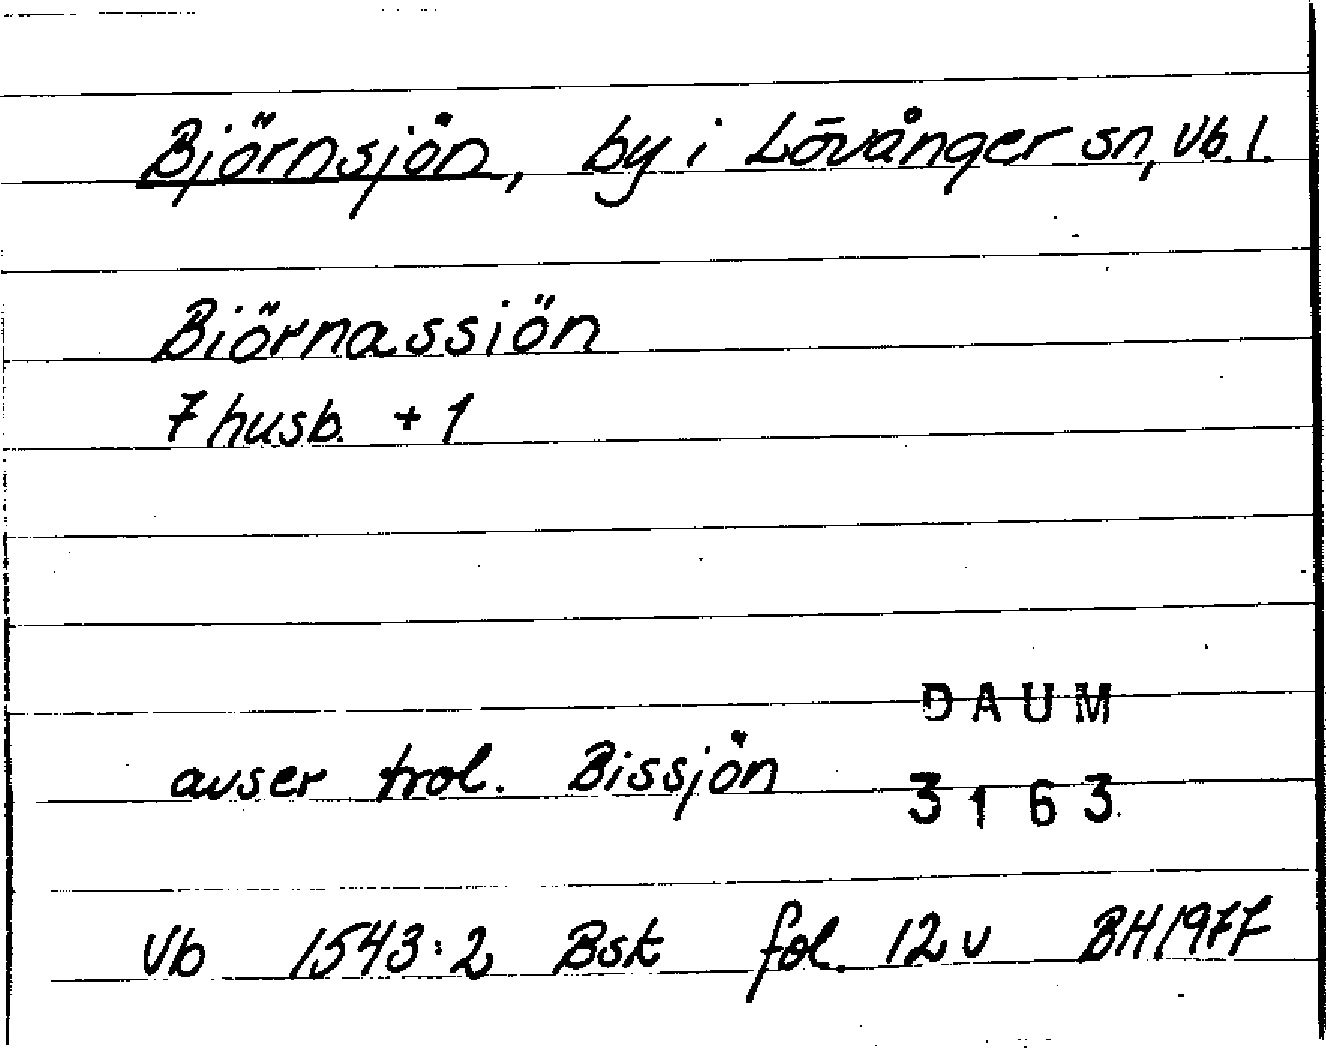 Björnsjön, by i Lövånger sn, Vb. l.
Biörnassiön
7 husb. + 1
DAUM
avser trol. Bissjön
3163
Vb 1543:2 Bsk fol. 12 v BH 1977